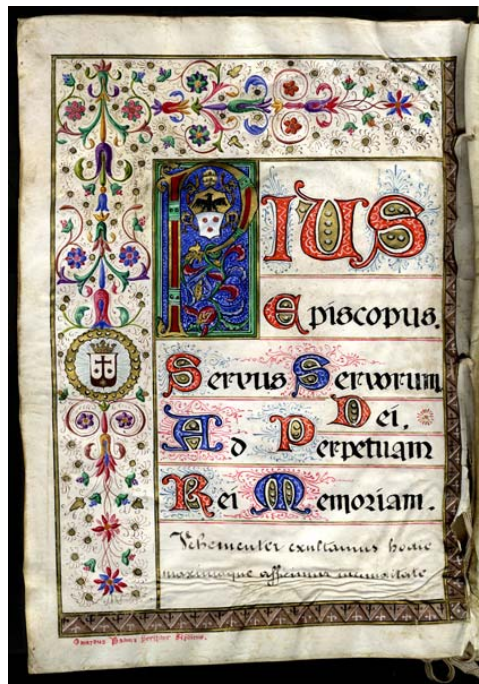 Pius
Episcopus.
Servus Servorum
Dei.
Ad Perpetuam
Rei Memoriam.
Vehementer exultamus hodie
maximaque